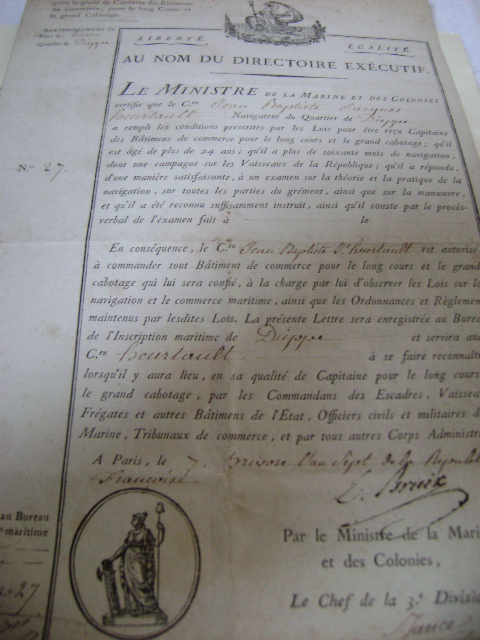 pour le grade de Capitaine des Bâtimens
du commerce, pour le long Cours et
le grand Cabotage.
Arrondissement de
Quartier de Dieppe
LIBERTÉ.
ÉGALITÉ.
AU NOM DU DIRECTOIRE EXÉCUTIF.
LE MINISTRE DE LA MARINE ET DES COLONIES
certifie que le C.en Jean Baptiste Jacques
heurtault Navigateur du Quartier de Dieppe
a rempli les conditions prescrites par les Lois pour être reçu Capitaine
des Bâtimens du commerce pour le long cours et le grand cabotage ; qu'il
est âgé de plus de 24 ans ; qu'il a plus de soixante mois de navigation,
N.º 27.
dont une campagne sur les Vaisseaux de la République ; qu'il a répondu,
d'une manière satisfaisante, à un examen sur la théorie et la pratique de la
navigation, sur toutes les parties du grément, ainsi que sur la manœuvre,
et qu'il a été reconnu suffisamment instruit, ainsi qu'il conste par le procès-
verbal de l'examen fait à le
En conséquence, le C.en Jean Baptiste Jes heurtault est autorisé
à commander tout Bâtiment de commerce pour le long cours et le grand
cabotage qui lui sera confié, à la charge par lui d'observer les Lois sur la
navigation et le commerce maritime, ainsi que les Ordonnances et Règlemen
maintenus par lesdites Lois. La présente Lettre sera enregistrée au Burea
de l'Inscription maritime de Dieppe et servira au
C.en heurtault à se faire reconnaît
lorsqu'il y aura lieu, en sa qualité de Capitaine pour le long cours
le grand cabotage, par les Commandans des Escadres, Vaissea
Frégates et autres Bâtimens de l'État, Officiers civils et militaires d
Marine, Tribunaux de commerce, et par tous autres Corps Administra
A Paris, le 7. Nivose l'an Sept de la Republi
Françoise
E. Bruix
au Bureau
maritime
Par le Ministre de la Mari
et des Colonies,
27
Le Chef de la 3.e Divisio